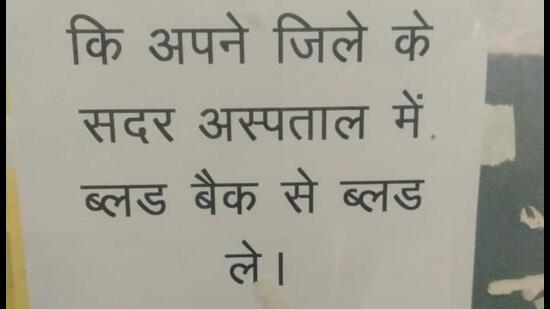 कि अपने जिले के
सदर अस्पताल में.
ब्लड बैक से ब्लड
ले।